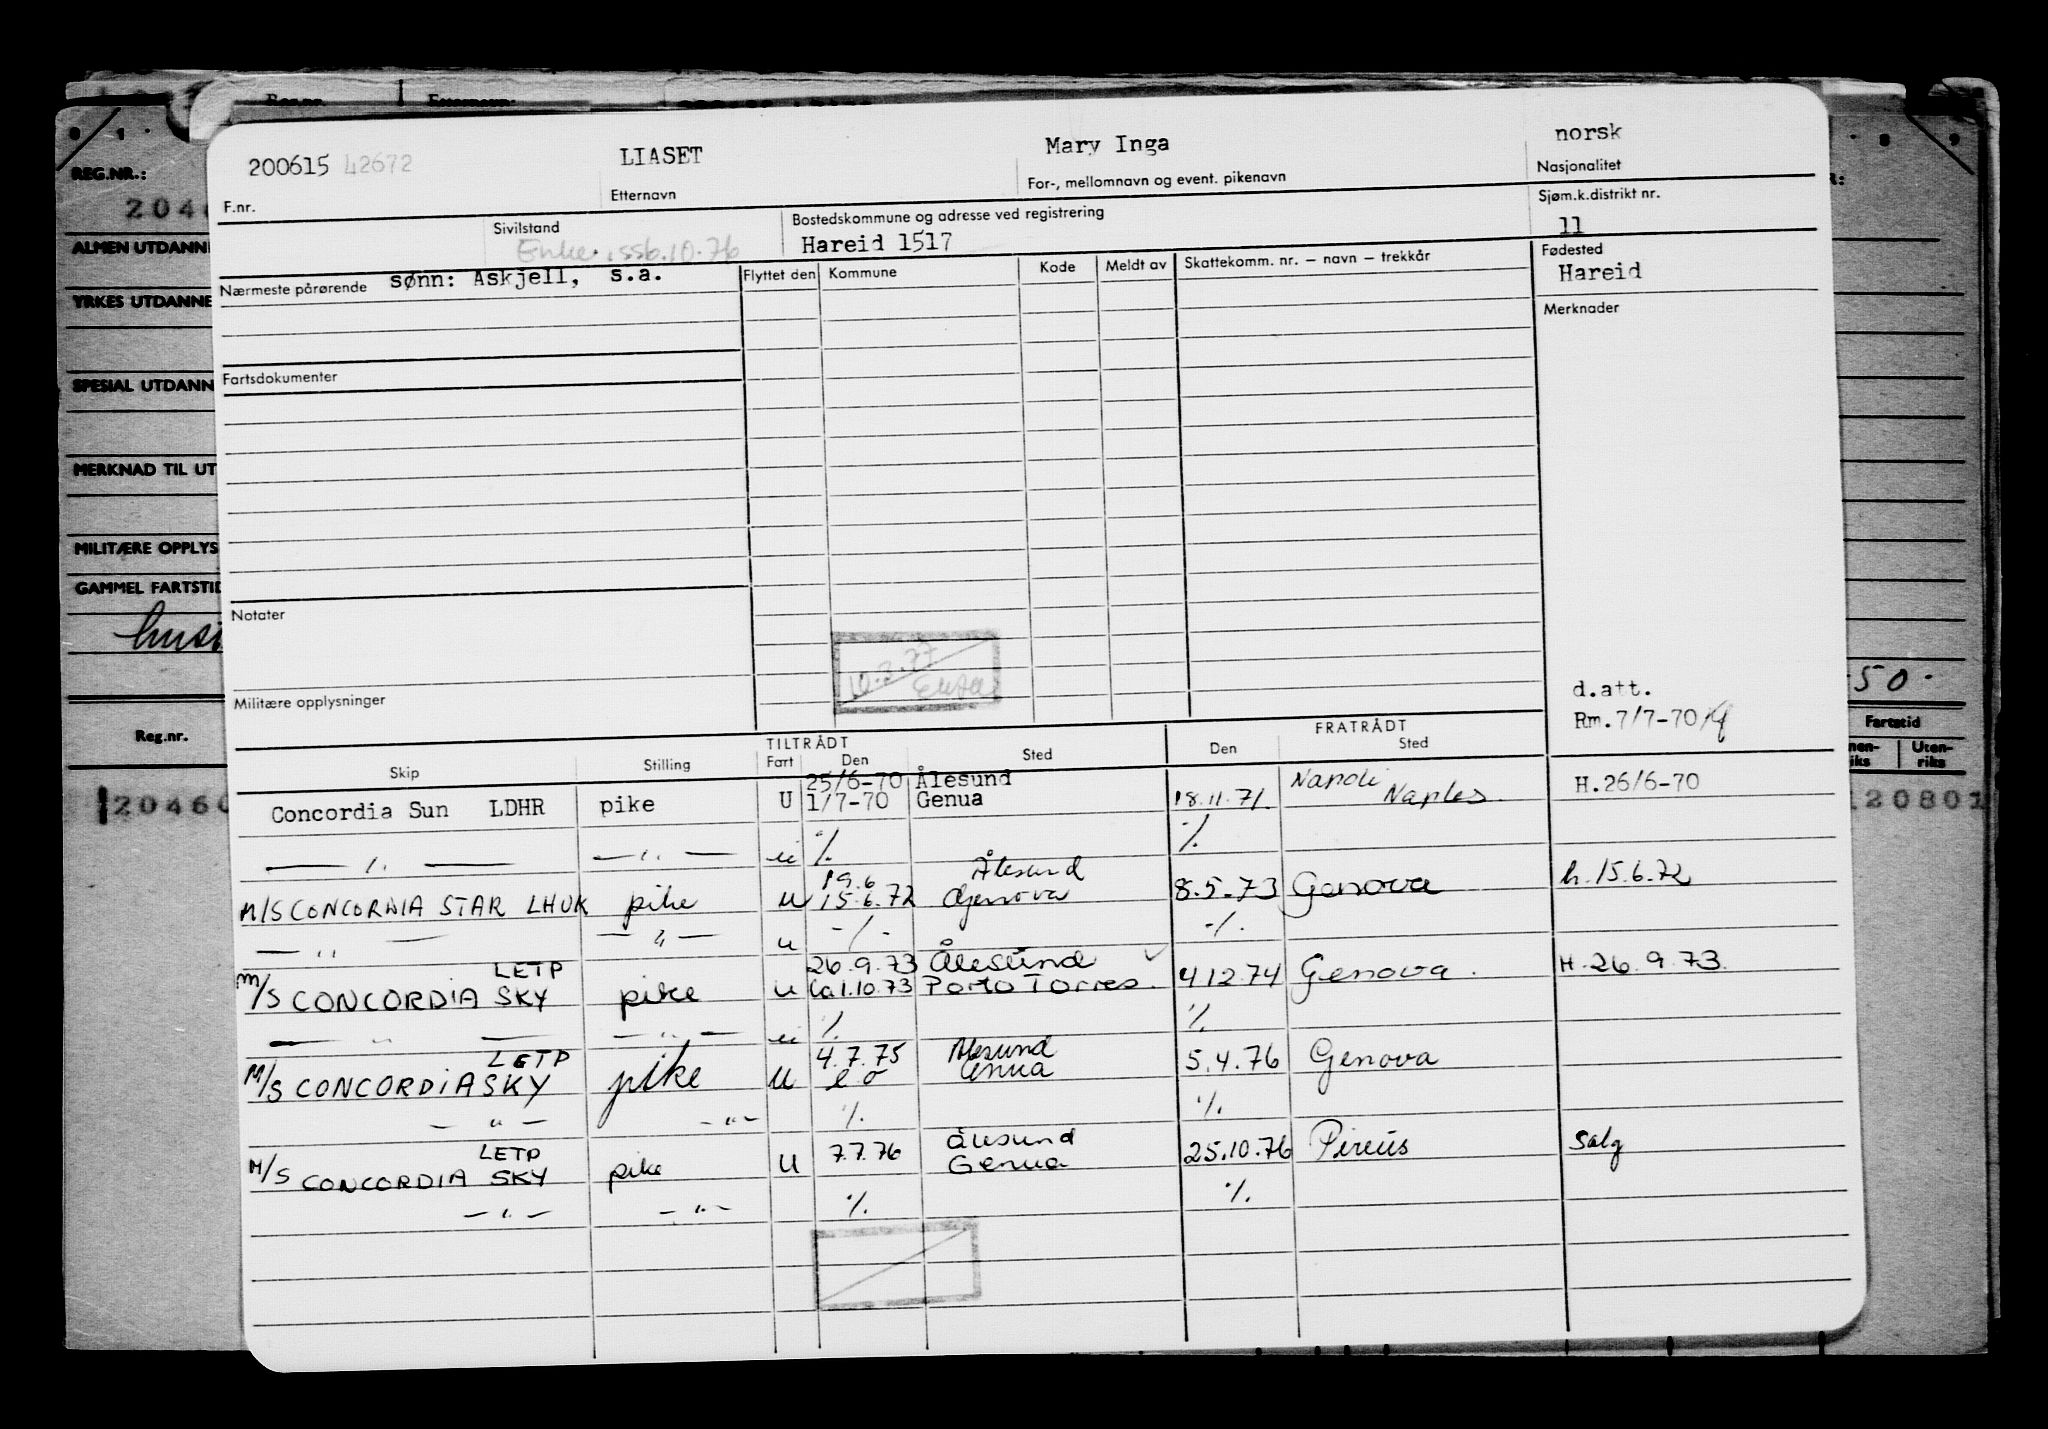 Reg.nr. Etternavn:
0 1 8 9
REG.NR.:
204
ALMEN UTDANNE
YRKES UTDANNE
SPESIAL UTDANN
MERKNAD TIL UT
MILITÆRE OPPLYS
GAMMEL FARTSTID
Reg.nr.
20460
50.
Fartstid
Uten-
riks
120801
200615 42672 LIASET Mary Inga norsk
F.nr. Etternavn For-, mellomnavn og event. pikenavn Nasjonalitet
Sivilstand Bostedskommune og adresse ved registrering Sjøm.k.distrikt nr.
Enke. ssb.10.76 Hareid 1517 11
Nærmeste pårørende sønn: Askjell, s.a. Flyttet den Kommune Kode Meldt av Skattekomm. nr. – navn – trekkår Fødested
Hareid
Merknader
Fartsdokumenter
Notater
Militære opplysninger
d.att.
Rm.7/7-70
TILTRÅDT FRATRÅDT
Skip Stilling Fart Den Sted Den Sted
25/6-70 Ålesund Napoli
Concordia Sun LDHR pike U 1/7-70 Genua 18.11.71. Naples. H.26/6-70
— " — — " — u % %
19.6 Ålesund
M/S CONCORDIA STAR LHUK pike u 15.6.72 Genova 8.5.73 Genova h.15.6.72
— " — — " — u -/- -/.
LETP 26.9.73 Ålesund
M/S CONCORDIA SKY pike u ca 1.10.73 Porto Torres. 4.12.74 Genova. H.26.9.73.
— " — — " — u % %
LETP 4.7.75 Ålesund
M/S CONCORDIA SKY pike u e o Genua 5.4.76 Genova
— " — — " — % %
LETP Ålesund
M/S CONCORDIA SKY pike U 7.7.76 Genua 25.10.76 Pireus Salg
— " — — " — % %